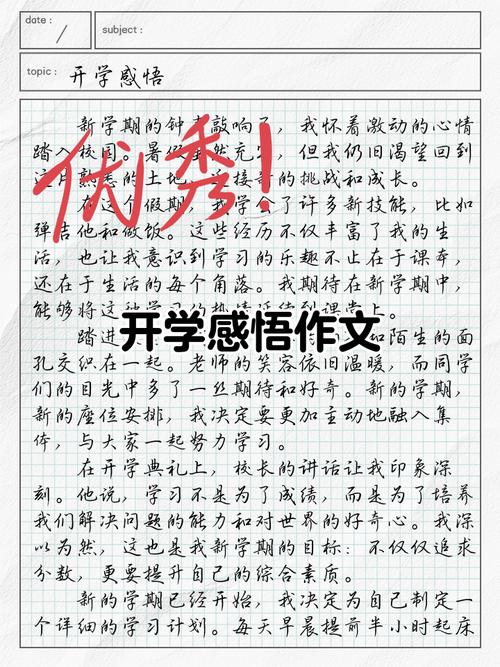 date :
subject :
topic : 开学感悟
新学期的钟敲响了，我怀着激动的心情
踏入校园。暑假虽然充实，但我仍旧渴望回到
这片熟悉的土地，迎接新的挑战和成长。
在这个假期，我学会了许多新技能，比如
弹吉他和做饭。这些经历不仅丰富了我的生
活，也让我意识到学习的乐趣不止在于课本，
还在于生活的每个角落。我期待在新学期中，
能够将这种学习的热情延续到课堂上。
踏进 和陌生的面
孔交织在一起。老师的笑容依旧温暖，而同学
们的目光中多了一丝期待和好奇。新的学期，
新的座位安排，我决定要更加主动地融入集
体，与大家一起努力学习。
在开学典礼上，校长的讲话让我印象深
刻。他说，学习不是为了成绩，而是为了培养
我们解决问题的能力和对世界的好奇心。我深
以为然，这也是我新学期的目标：不仅仅追求
分数，更要提升自己的综合素质。
新的学期已经开始，我决定为自己制定一
个详细的学习计划。每天早晨提前半小时起床
优秀！
开学感悟作文